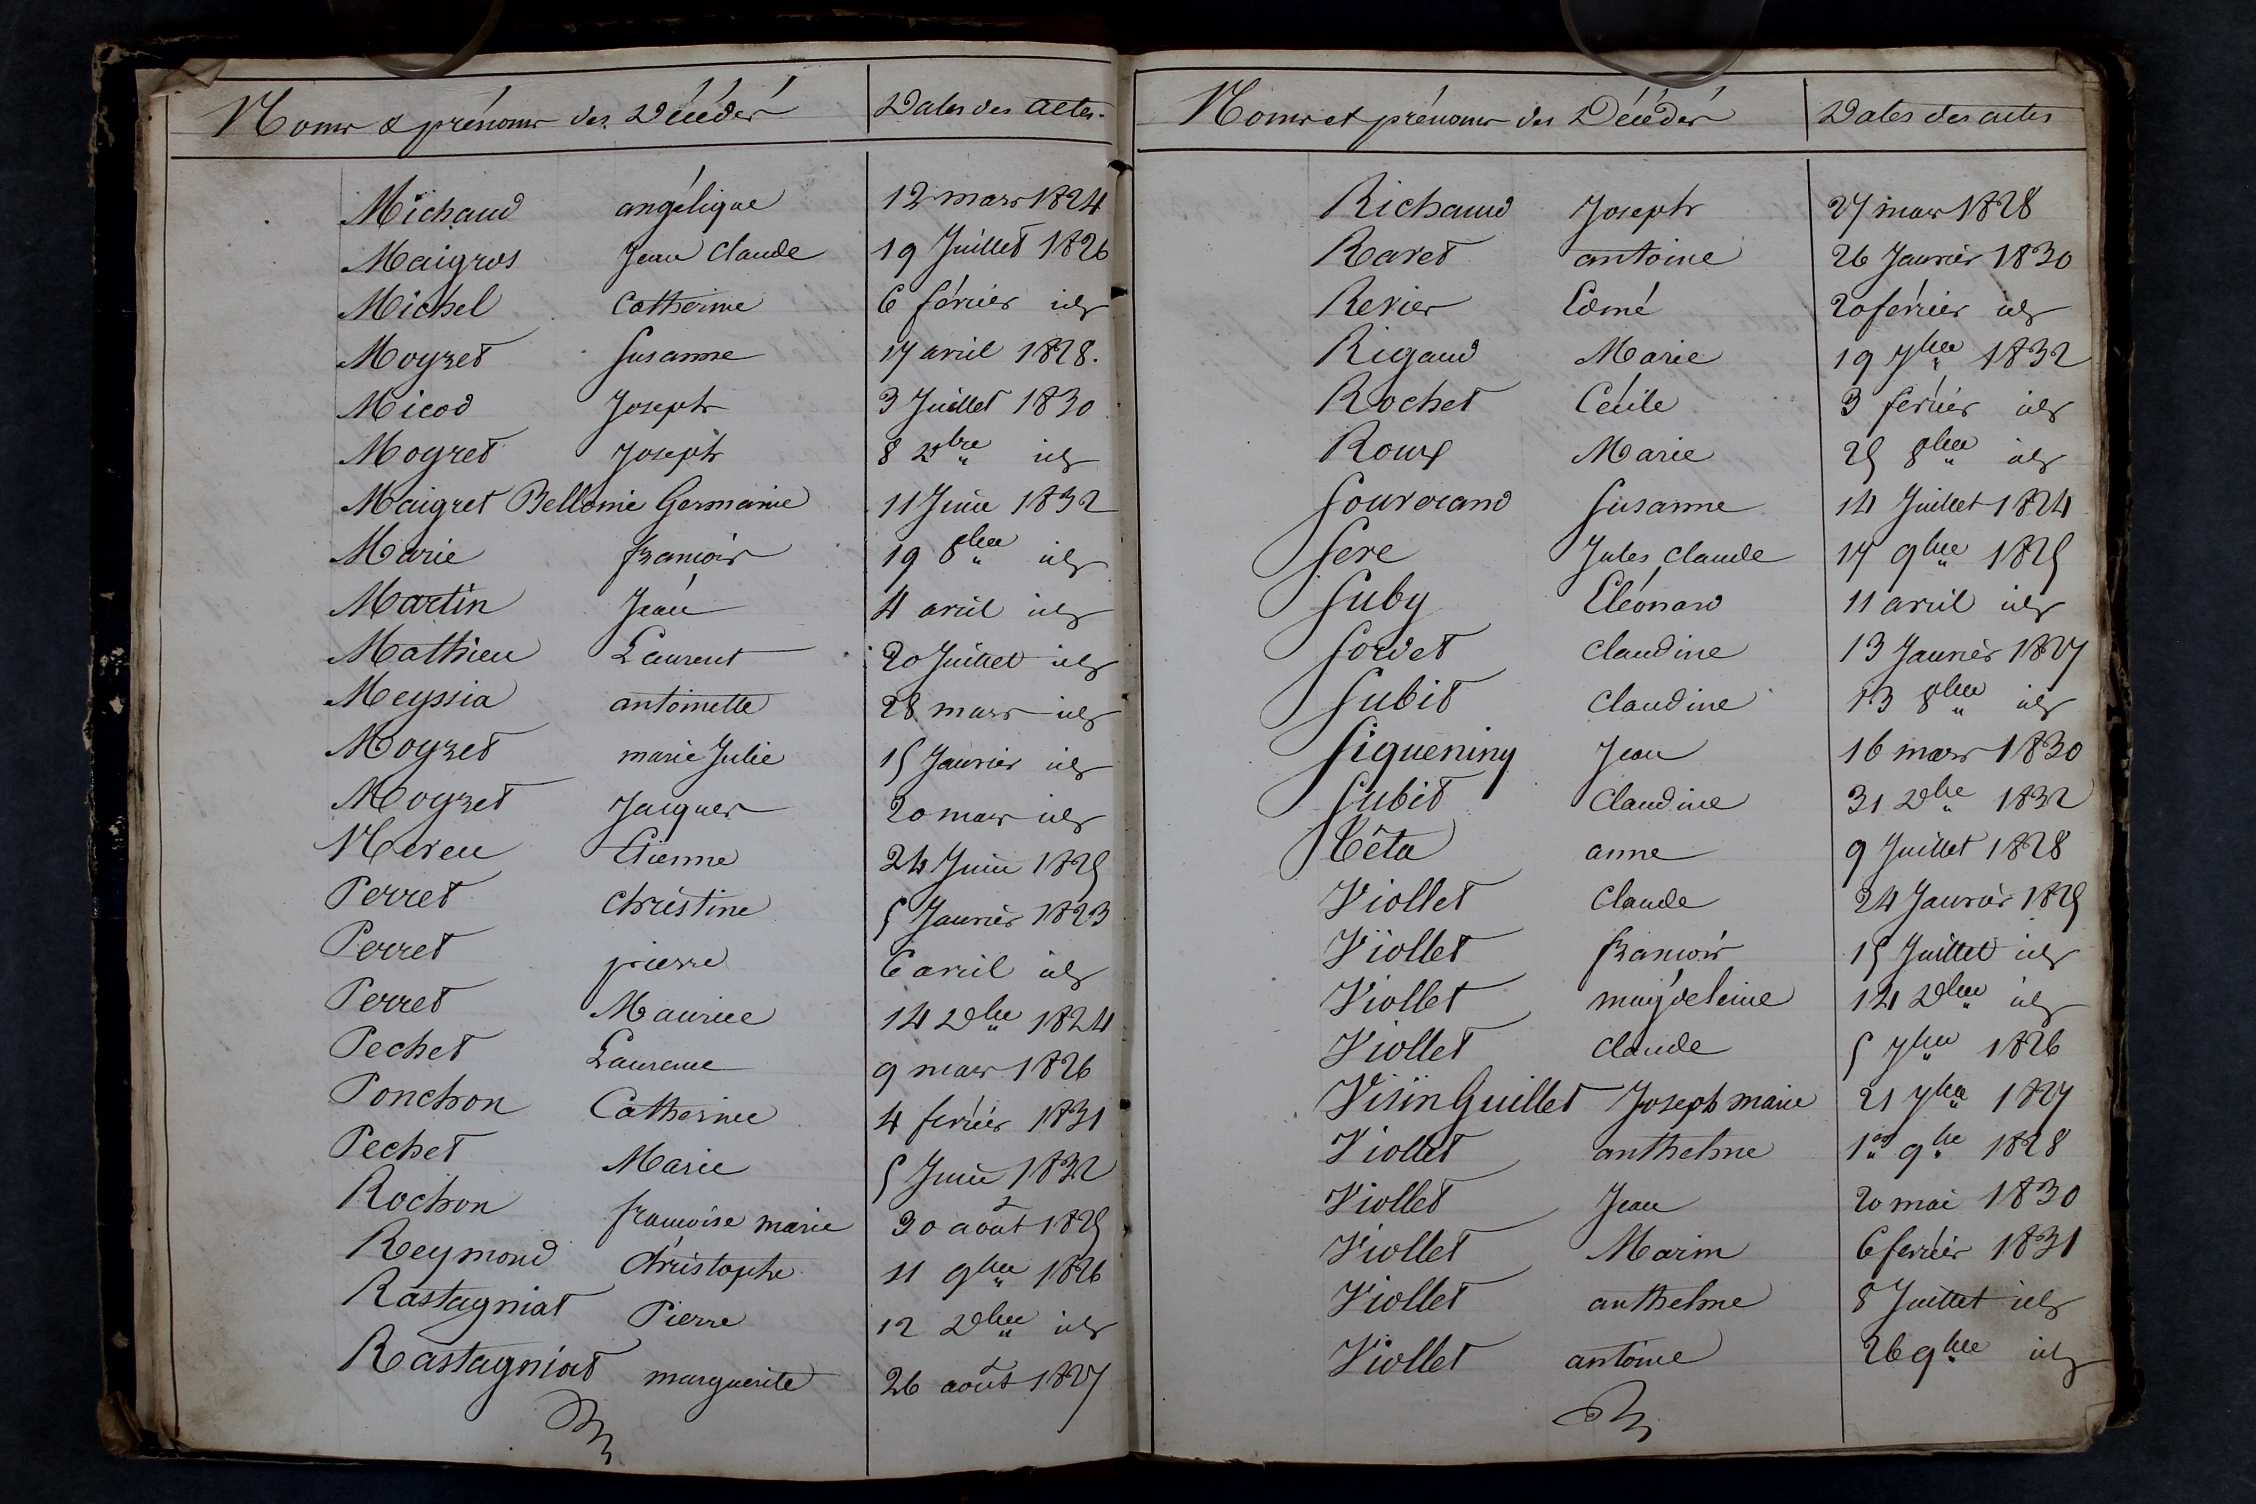 Noms & prénoms des Décédés Dates des actes.
Michaud angélique 12 mars 1824
Maigros Jean Claude 19 Juillet 1826
Michel Catherine 6 février id
Moyret Susanne 17 avril 1828.
Micod Joseph 3 Juillet 1830
Moyret Joseph 8 Xbre id
Maigret Bellomie Germaine 11 Juin 1832
Marie françois 19 8bre id
Martin Jean 4 avril id
Mathieu Laurent 20 Juillet id
Meyssia antoinette 28 mars id
Moyret marie Julie 15 Janvier id
Moyret Jacques 20 mars id
Nereu Etienne 24 Juin 1825
Perret christine 5 Janvier 1823
Perret pierre 6 avril id
Perret Maurice 14 Xbre 1824
Pechet Laurence 9 mars 1826
Ponchon Catherine 4 février 1831
Pechet Marie 5 Juin 1832
Rochon francoise marie 30 août 1825
Reymond Christophe 11 9bre 1826
Rastagniat Pierre 12 Xbre id
Rastagniat marguerite 26 août 1827
Noms et prénoms des Décédés Dates des actes
Richaud Joseph 27 mars 1828
Raret antoine 26 Janvier 1830
Revier Edmé 20 février id
Rigaud Marie 19 7bre 1832
Rochet Cécile 3 février id
Roux Marie 25 8bre id
Souverand Susanne 14 Juillet 1824
Sere Jules Claude 17 9bre 1825
Suby Eléonard 11 avril id
Sordet Claudine 13 Janvier 1827
Subit Claudine 13 8bre id
Siquening Jean 16 mars 1830
Subit Claudine 31 Xbre 1832
Têta anne 9 Juillet 1828
Viollet Claude 24 Janvier 1825
Viollet françois 15 Juillet id
Viollet magdeleine 14 Xbre id
Viollet claude 5 7bre 1826
Visin Guillet Joseph marie 21 7bre 1827
Viollet anthelme 1er 9bre 1828
Viollet Jean 20 mai 1830
Viollet Marin 6 février 1831
Viollet anthelme 8 Juillet id
Viollet antoine 26 9bre id